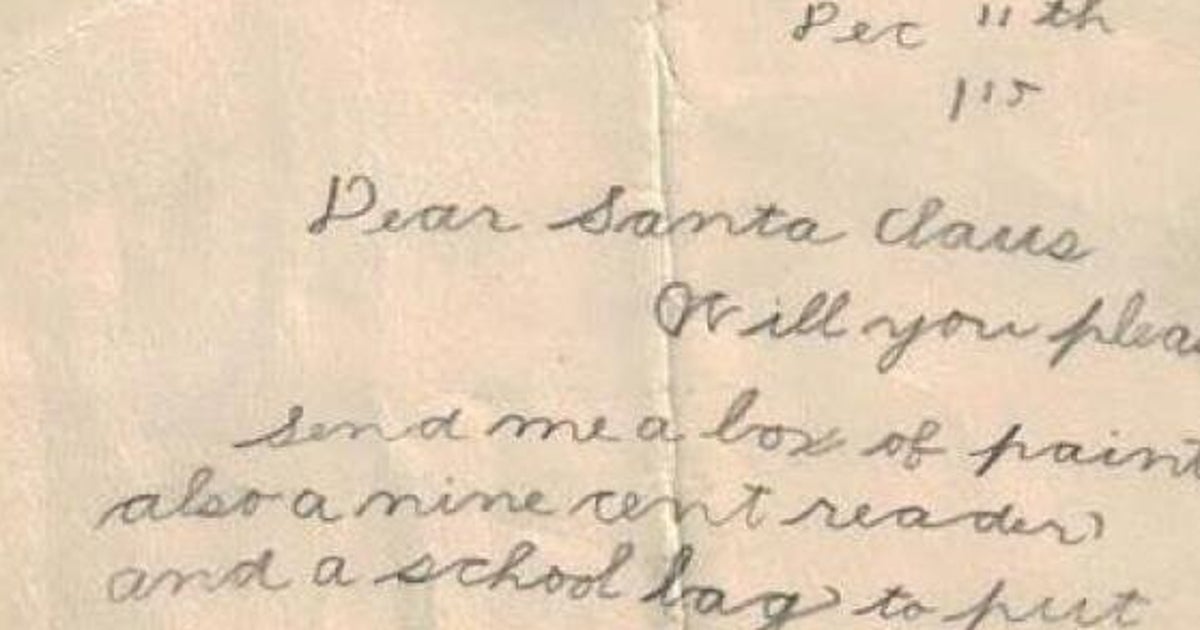 Dec 11th
Dear Santa Claus
Will you pleas
send me a box of paint
also a nine cent reader
and a school bag to put